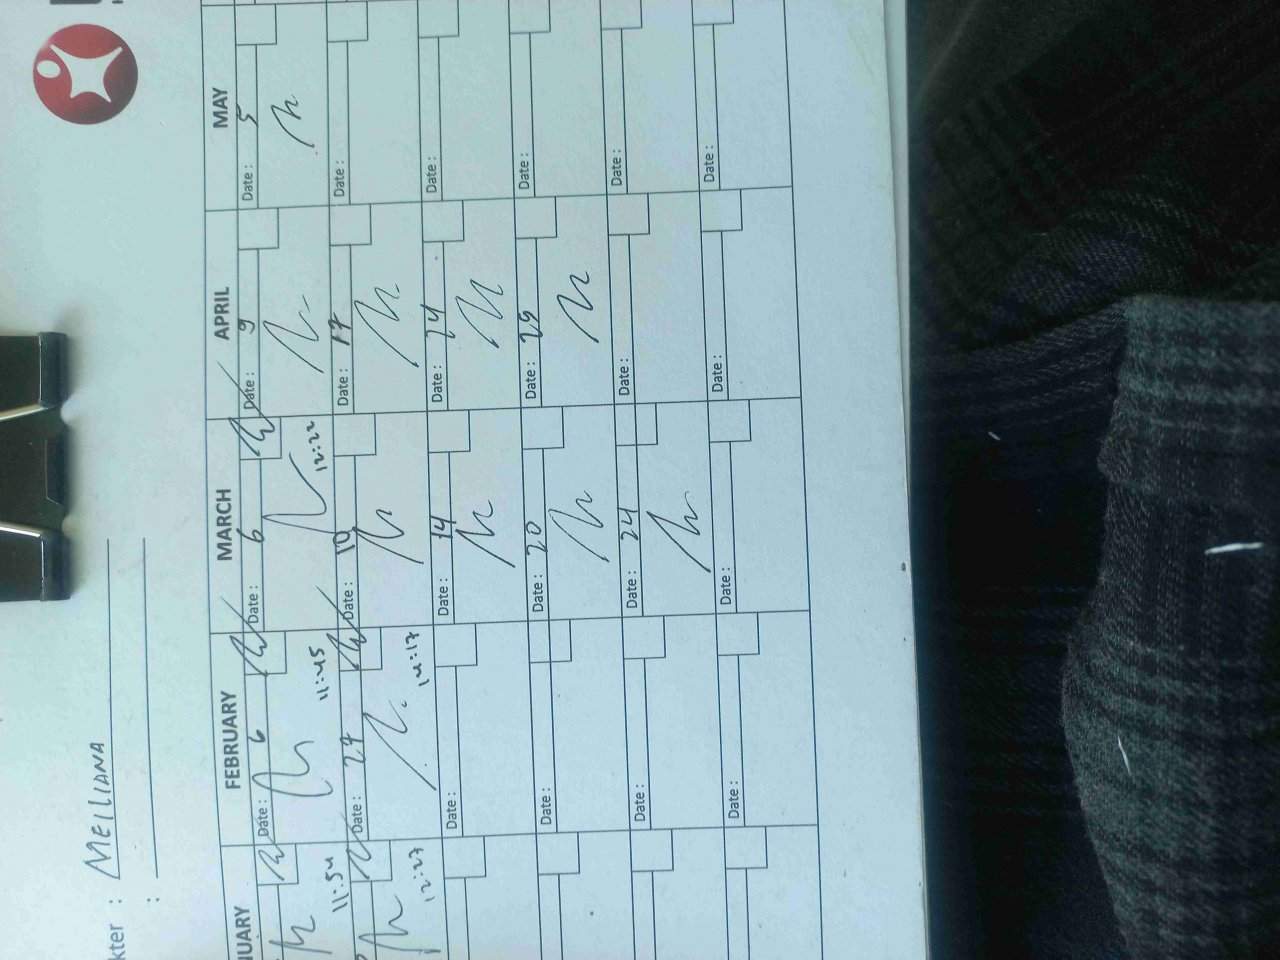 kter : MEILIANA
:
NUARY FEBRUARY MARCH APRIL MAY
Date : 6 Date : 6 Date : 9 Date : 5
11:54 11:45 12:22
Date : 27 Date : 10 Date : 17 Date :
12:27 14:17
Date : Date : 14 Date : 24 Date :
Date : Date : 20 Date : 29 Date :
Date : Date : 24 Date : Date :
Date : Date : Date : Date :